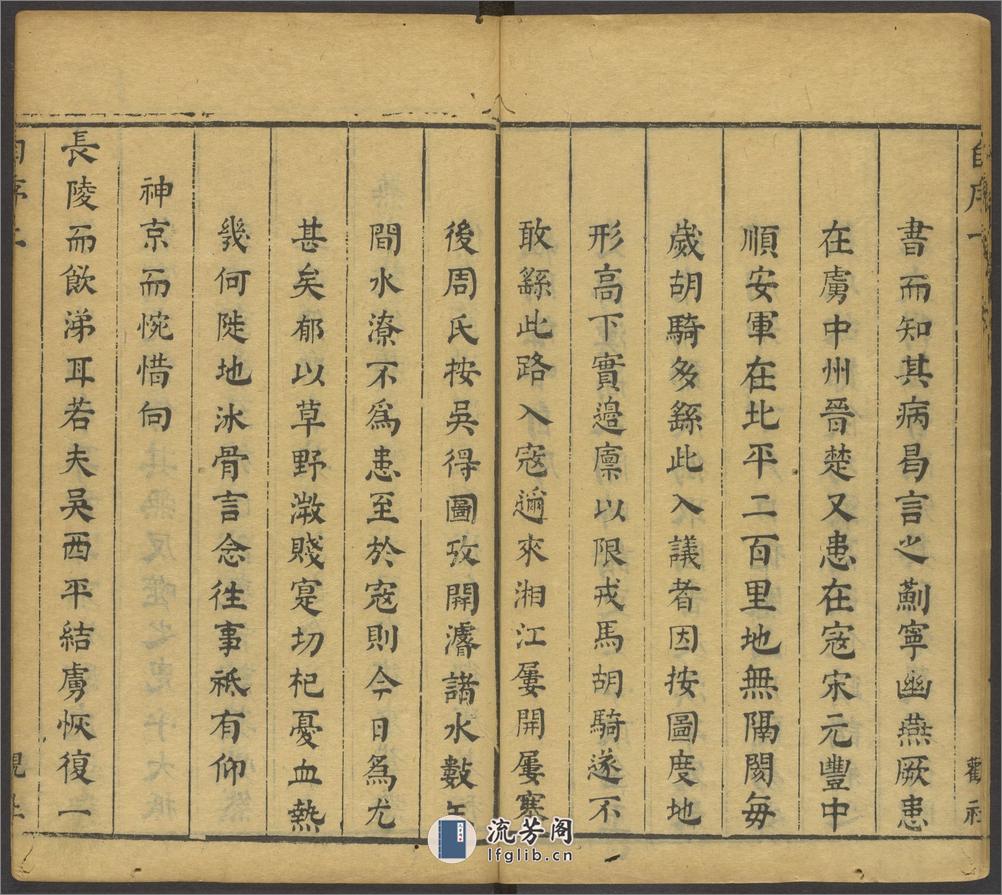 自序一
觀社
書而知其病曷言之薊寧幽燕厥患
在虜中州晉楚又患在寇宋元豐中
順安軍在北平二百里地無隔閡每
歲胡騎多繇此入議者因按圖度地
形高下實邊廩以限戎馬胡騎遂不
敢繇此路入寇邇來湘江屢開屢塞
後周氏按吳得圖攷開濬諸水數年
間水潦不爲患至於寇則今日爲尤
甚矣郁以草野澂賤寔切杞憂血熱
幾何陡地冰骨言念徃事祇有仰
神京而惋惜向
長陵而飲涕耳若夫吳西平結虜恢復一
流芳阁
lfglib.cn